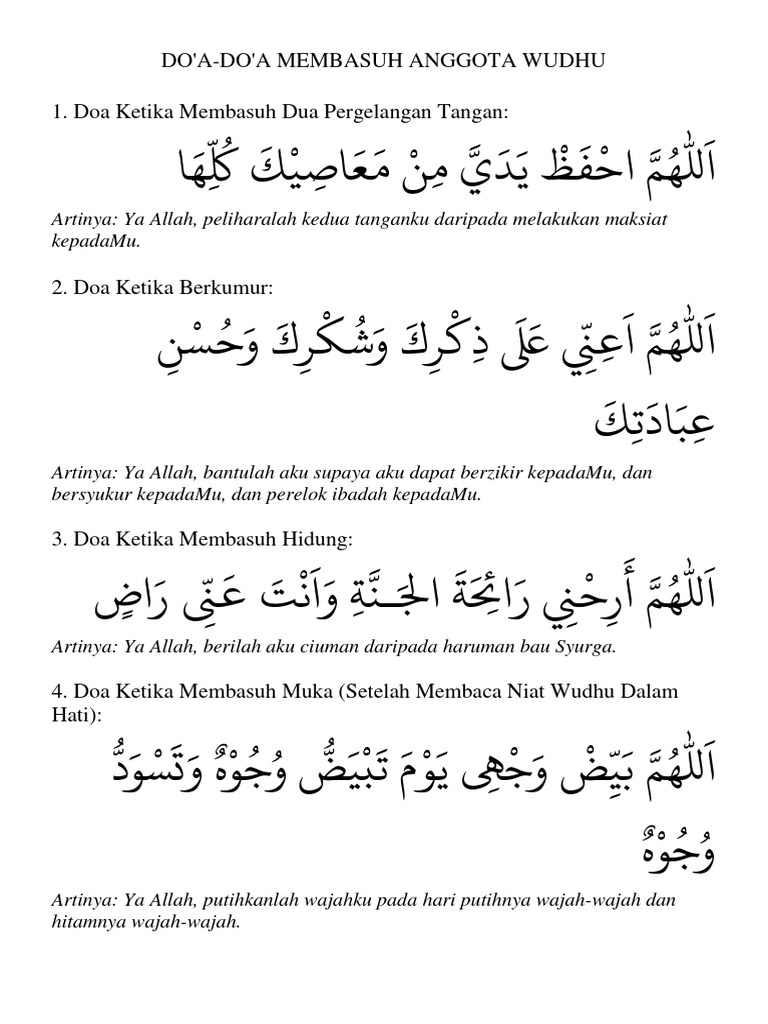 DO'A-DO'A MEMBASUH ANGGOTA WUDHU
1. Doa Ketika Membasuh Dua Pergelangan Tangan:
اَللّٰهُمَّ احْفَظْ يَدَيَّ مِنْ مَعَاصِيْكَ كُلِّهَا
Artinya: Ya Allah, peliharalah kedua tanganku daripada melakukan maksiat
kepadaMu.
2. Doa Ketika Berkumur:
اَللّٰهُمَّ اَعِنِّي عَلَى ذِكْرِكَ وَشُكْرِكَ وَحُسْنِ
عِبَادَتِكَ
Artinya: Ya Allah, bantulah aku supaya aku dapat berzikir kepadaMu, dan
bersyukur kepadaMu, dan perelok ibadah kepadaMu.
3. Doa Ketika Membasuh Hidung:
اَللّٰهُمَّ أَرِحْنِي رَائِحَةَ الْجَـنَّةِ وَاَنْتَ عَنِّى رَاضٍ
Artinya: Ya Allah, berilah aku ciuman daripada haruman bau Syurga.
4. Doa Ketika Membasuh Muka (Setelah Membaca Niat Wudhu Dalam
Hati):
اَللّٰهُمَّ بَيِّضْ وَجْهِى يَوْمَ تَبْيَضُّ وُجُوْهٌ وَتَسْوَدُّ
وُجُوْهٌ
Artinya: Ya Allah, putihkanlah wajahku pada hari putihnya wajah-wajah dan
hitamnya wajah-wajah.